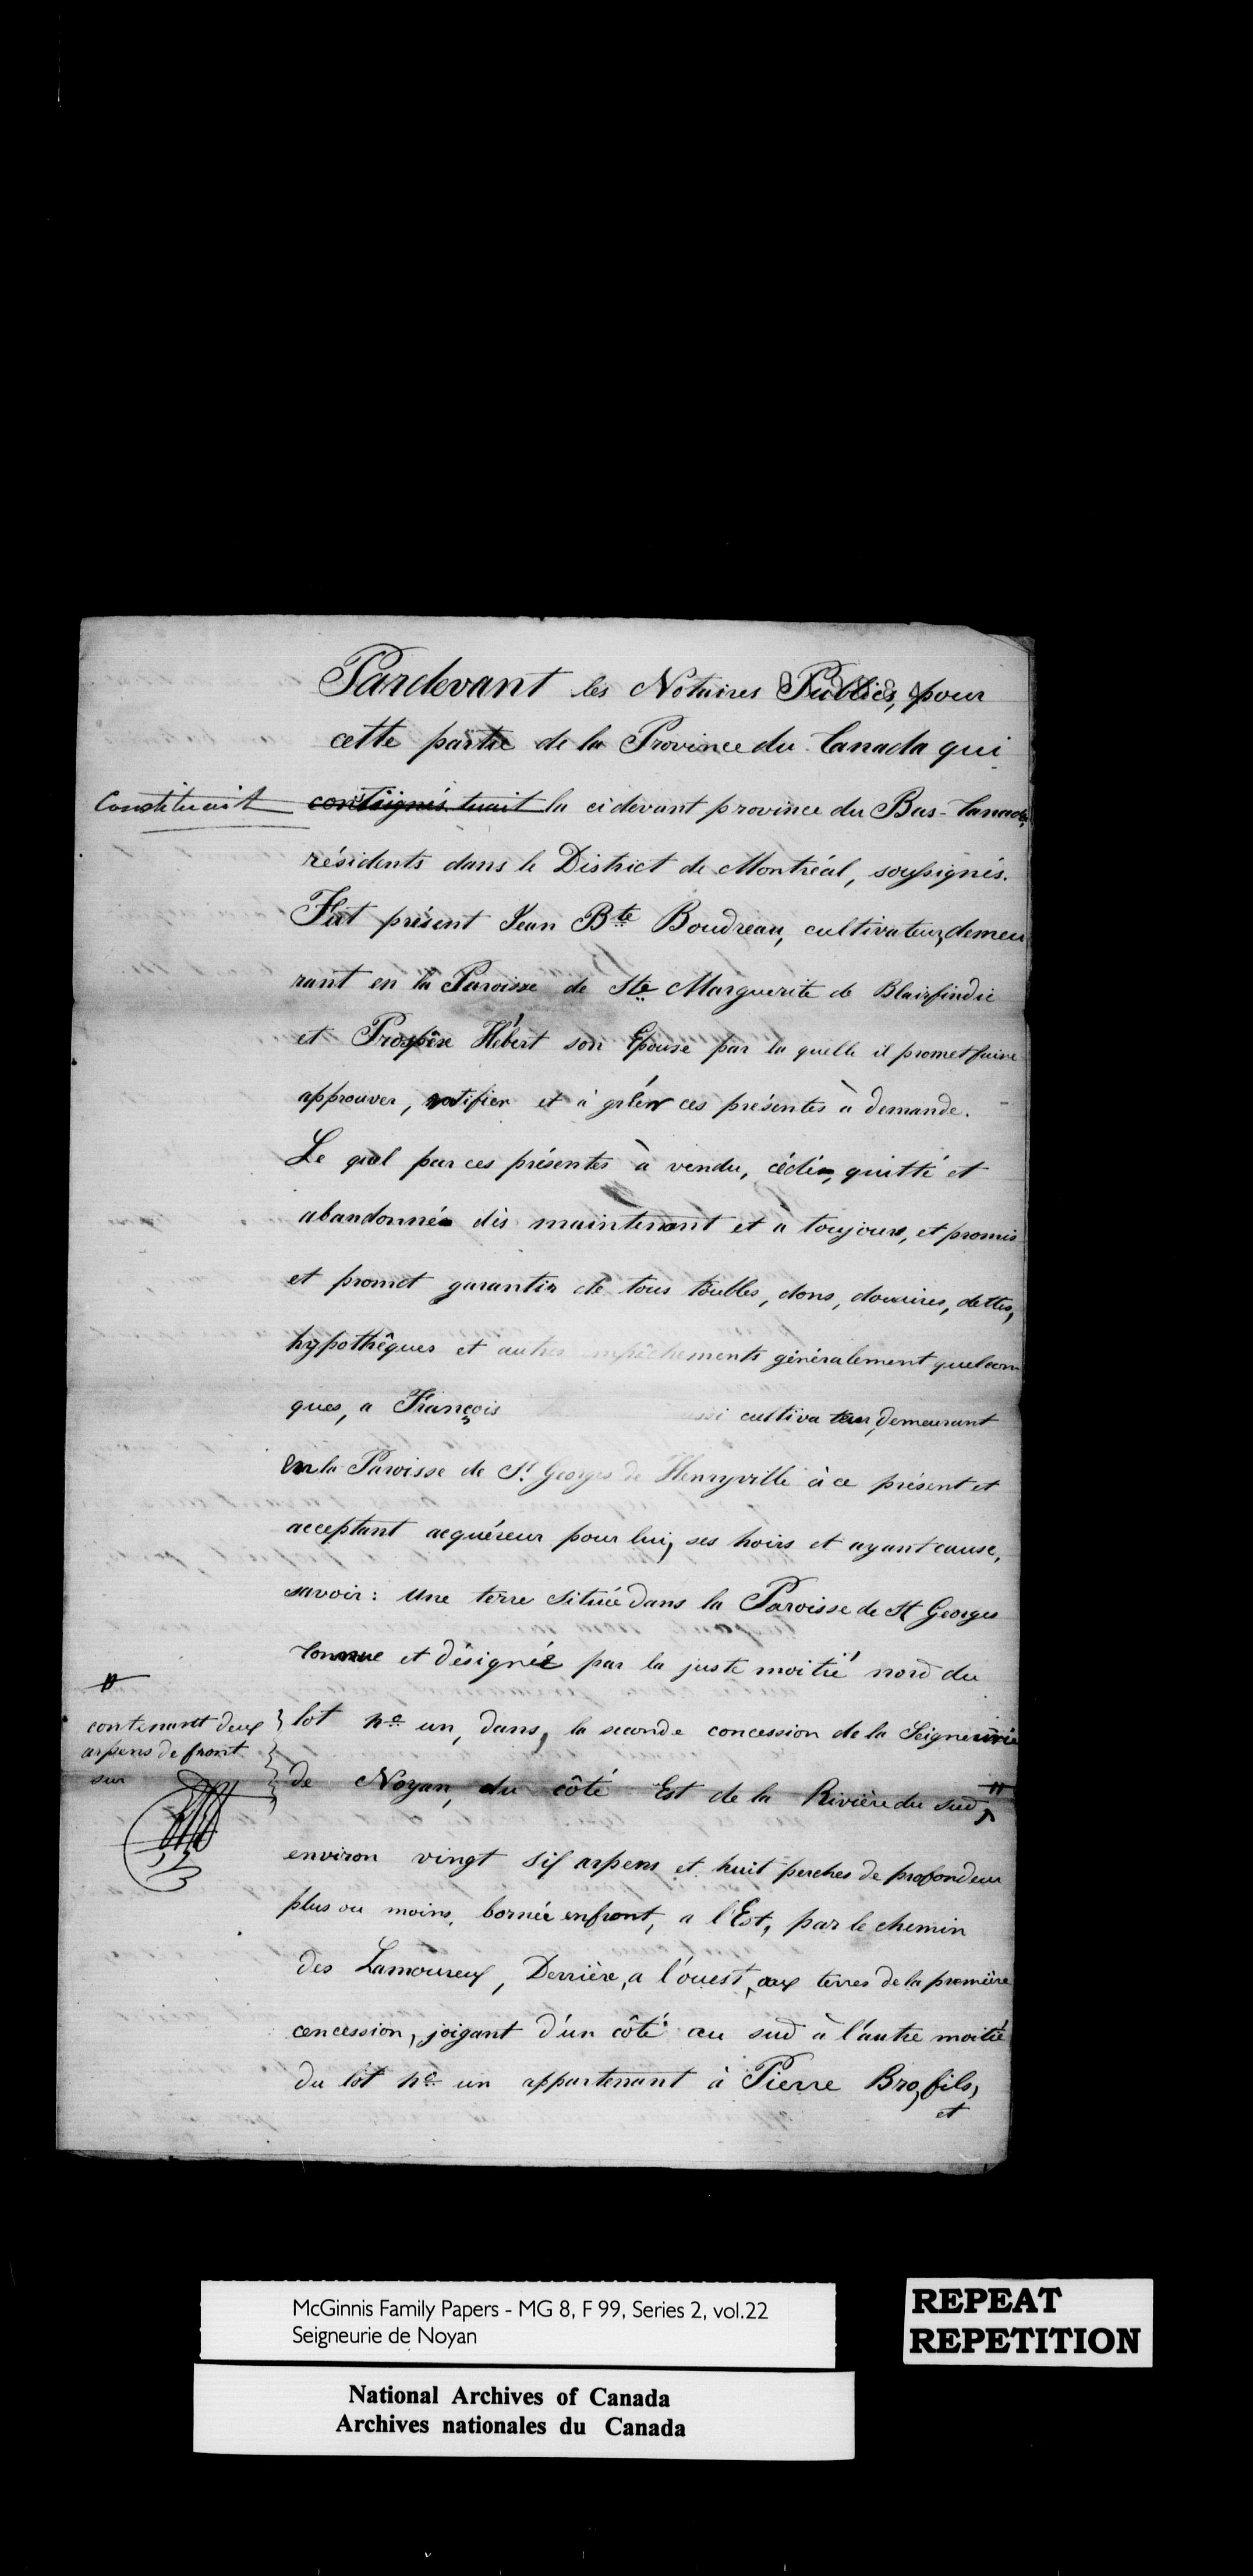 Pardevant les Notaires Publics, pour
cette partie de la Province du Canada qui
Constituait
contsignés tuait la ci devant province du Bas-Canada,
résidents dans le District de Montréal, soussignés.
Fut présent Jean Bte Boudreau, cultivateur, demeu
rant en la Paroisse de Ste Marguerite de Blairfindie
et Prospère Hébert son Epouse par la quelle il promet faire
approuver, ratifier et à gréer ces présentes à demande.
Le quel par ces présentes à vendu, cédé, quitté et
abandonné dès maintenant et à toujours, et promis
et promet garantir de tous toubles, dons, douaires, dettes,
hypothêques et autres empêchements généralement quelcon
ques, a François aussi cultiva teur, demeurant
en la Paroisse de St Georges de Henryville à ce présent et
acceptant acquéreur pour lui, ses hoirs et ayant cause,
savoir: Une terre située dans la Paroisse de St Georges
Connue et désignée par la juste moitié nord du
lot no un, dans, la seconde concession de la Seigneurie
de Noyan, du côté Est de la Rivière du sud,
contenantt deux
arpens de front
sur
environ vingt six arpens et huit perches de profondeur
plus ou moins, bornée enfront, a l'Est, par le chemin
des Lamoureux, Derrière, a l'ouest, aux terres de la première
cencession, joigant d'un côté au sud à l'autre moitié
du lot no un appartenant à Pierre Bro, fils,
et
McGinnis Family Papers - MG 8, F 99, Series 2, vol.22
Seigneurie de Noyan
REPEAT
REPETITION
National Archives of Canada
Archives nationales du Canada